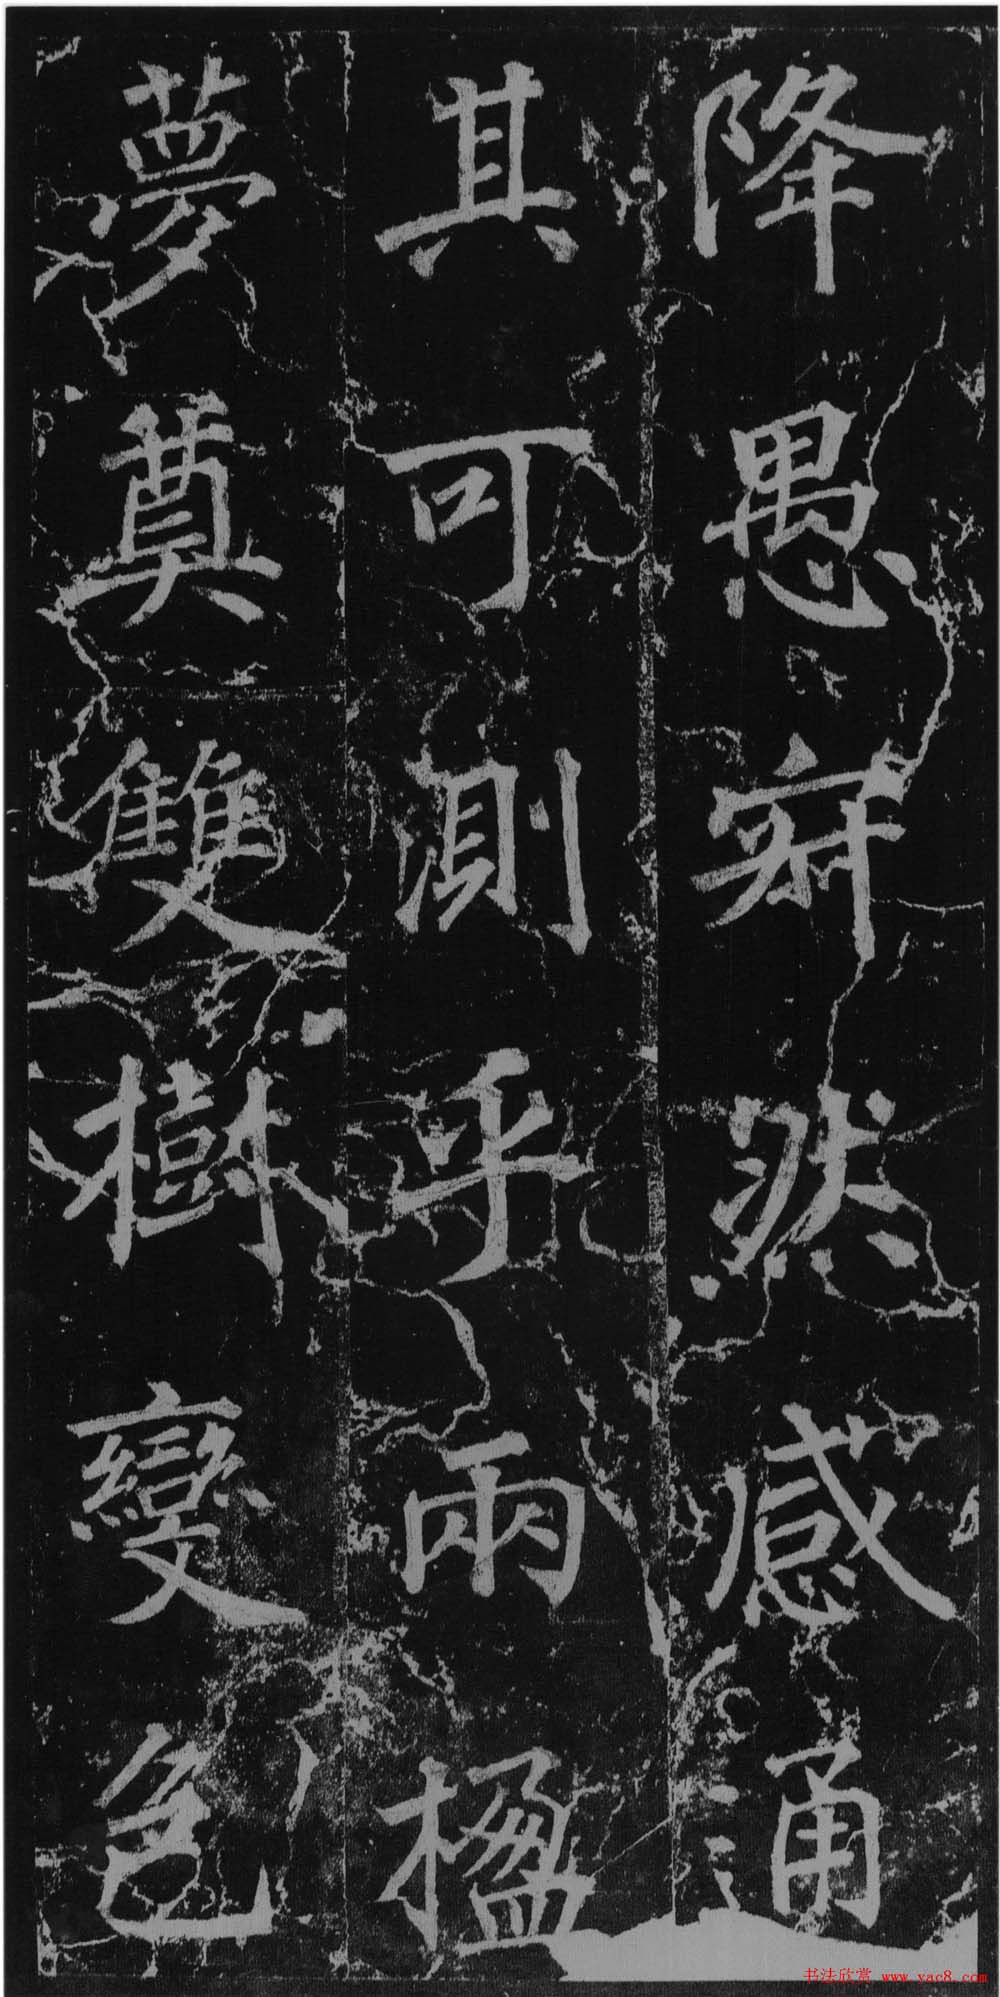 降愚寂然感通
其可測乎兩楹
夢奠雙樹變色
书法欣赏 www.yac8.com